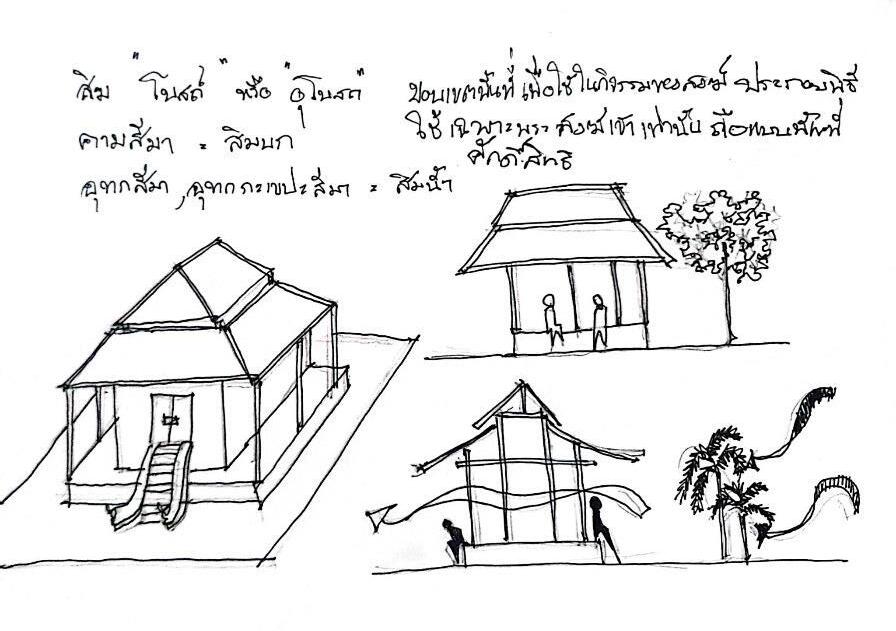 สิม "โบสถ์" หรือ "อุโบสถ"
คามสีมา = สิมบก
อุทกสีมา, อุทกกะเขปะสีมา = สิมน้ำ
ขอบเขตพื้นที่ เพื่อใช้ในกิจกรรมของสงฆ์ ประกอบพิธี
ใช้เฉพาะพระสงฆ์เข้าเท่านั้น ถือ เป็นพื้นที่
ศักดิ์สิทธิ